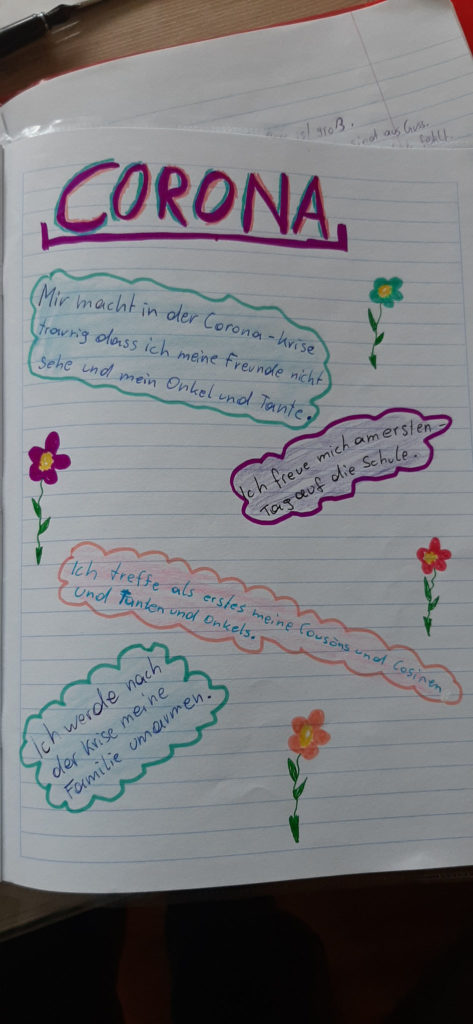 ist groß.
sind aus Guss.
CORONA
Mir macht in der Corona-krise
traurig dass ich meine Freunde nicht
sehe und mein Onkel und Tante.
Ich freue mich am ersten-
Tag auf die Schule.
Ich treffe als erstes meine Cousöns und Cosinen
und Tanten und Onkels.
Ich werde nach
der Krise meine
Familie umarmen.